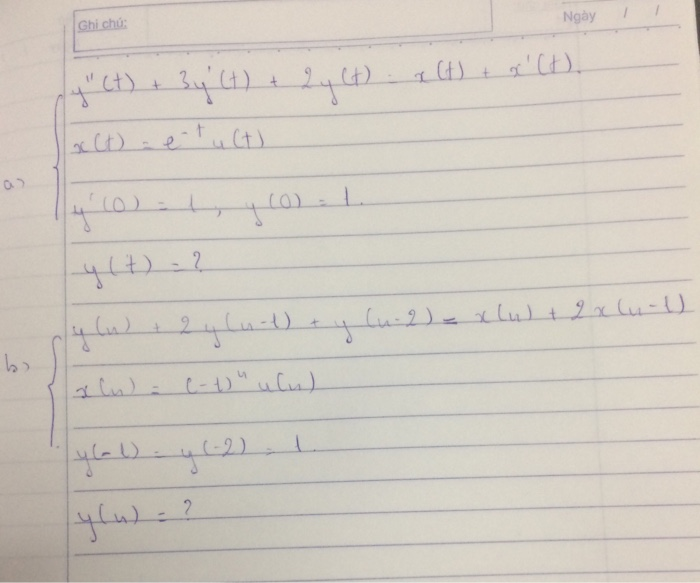 Ghi chú:
Ngày / /
y"(t) + 3y'(t) + 2y(t) = x(t) + x'(t).
x(t) = e^-t u(t)
a)
y'(0) = 1, y(0) = 1.
y(t) = ?
y(n) + 2y(n-1) + y(n-2) = x(n) + 2x(n-1)
b)
x(n) = (-1)^n u(n)
y(-1) = y(-2) = 1.
y(n) = ?